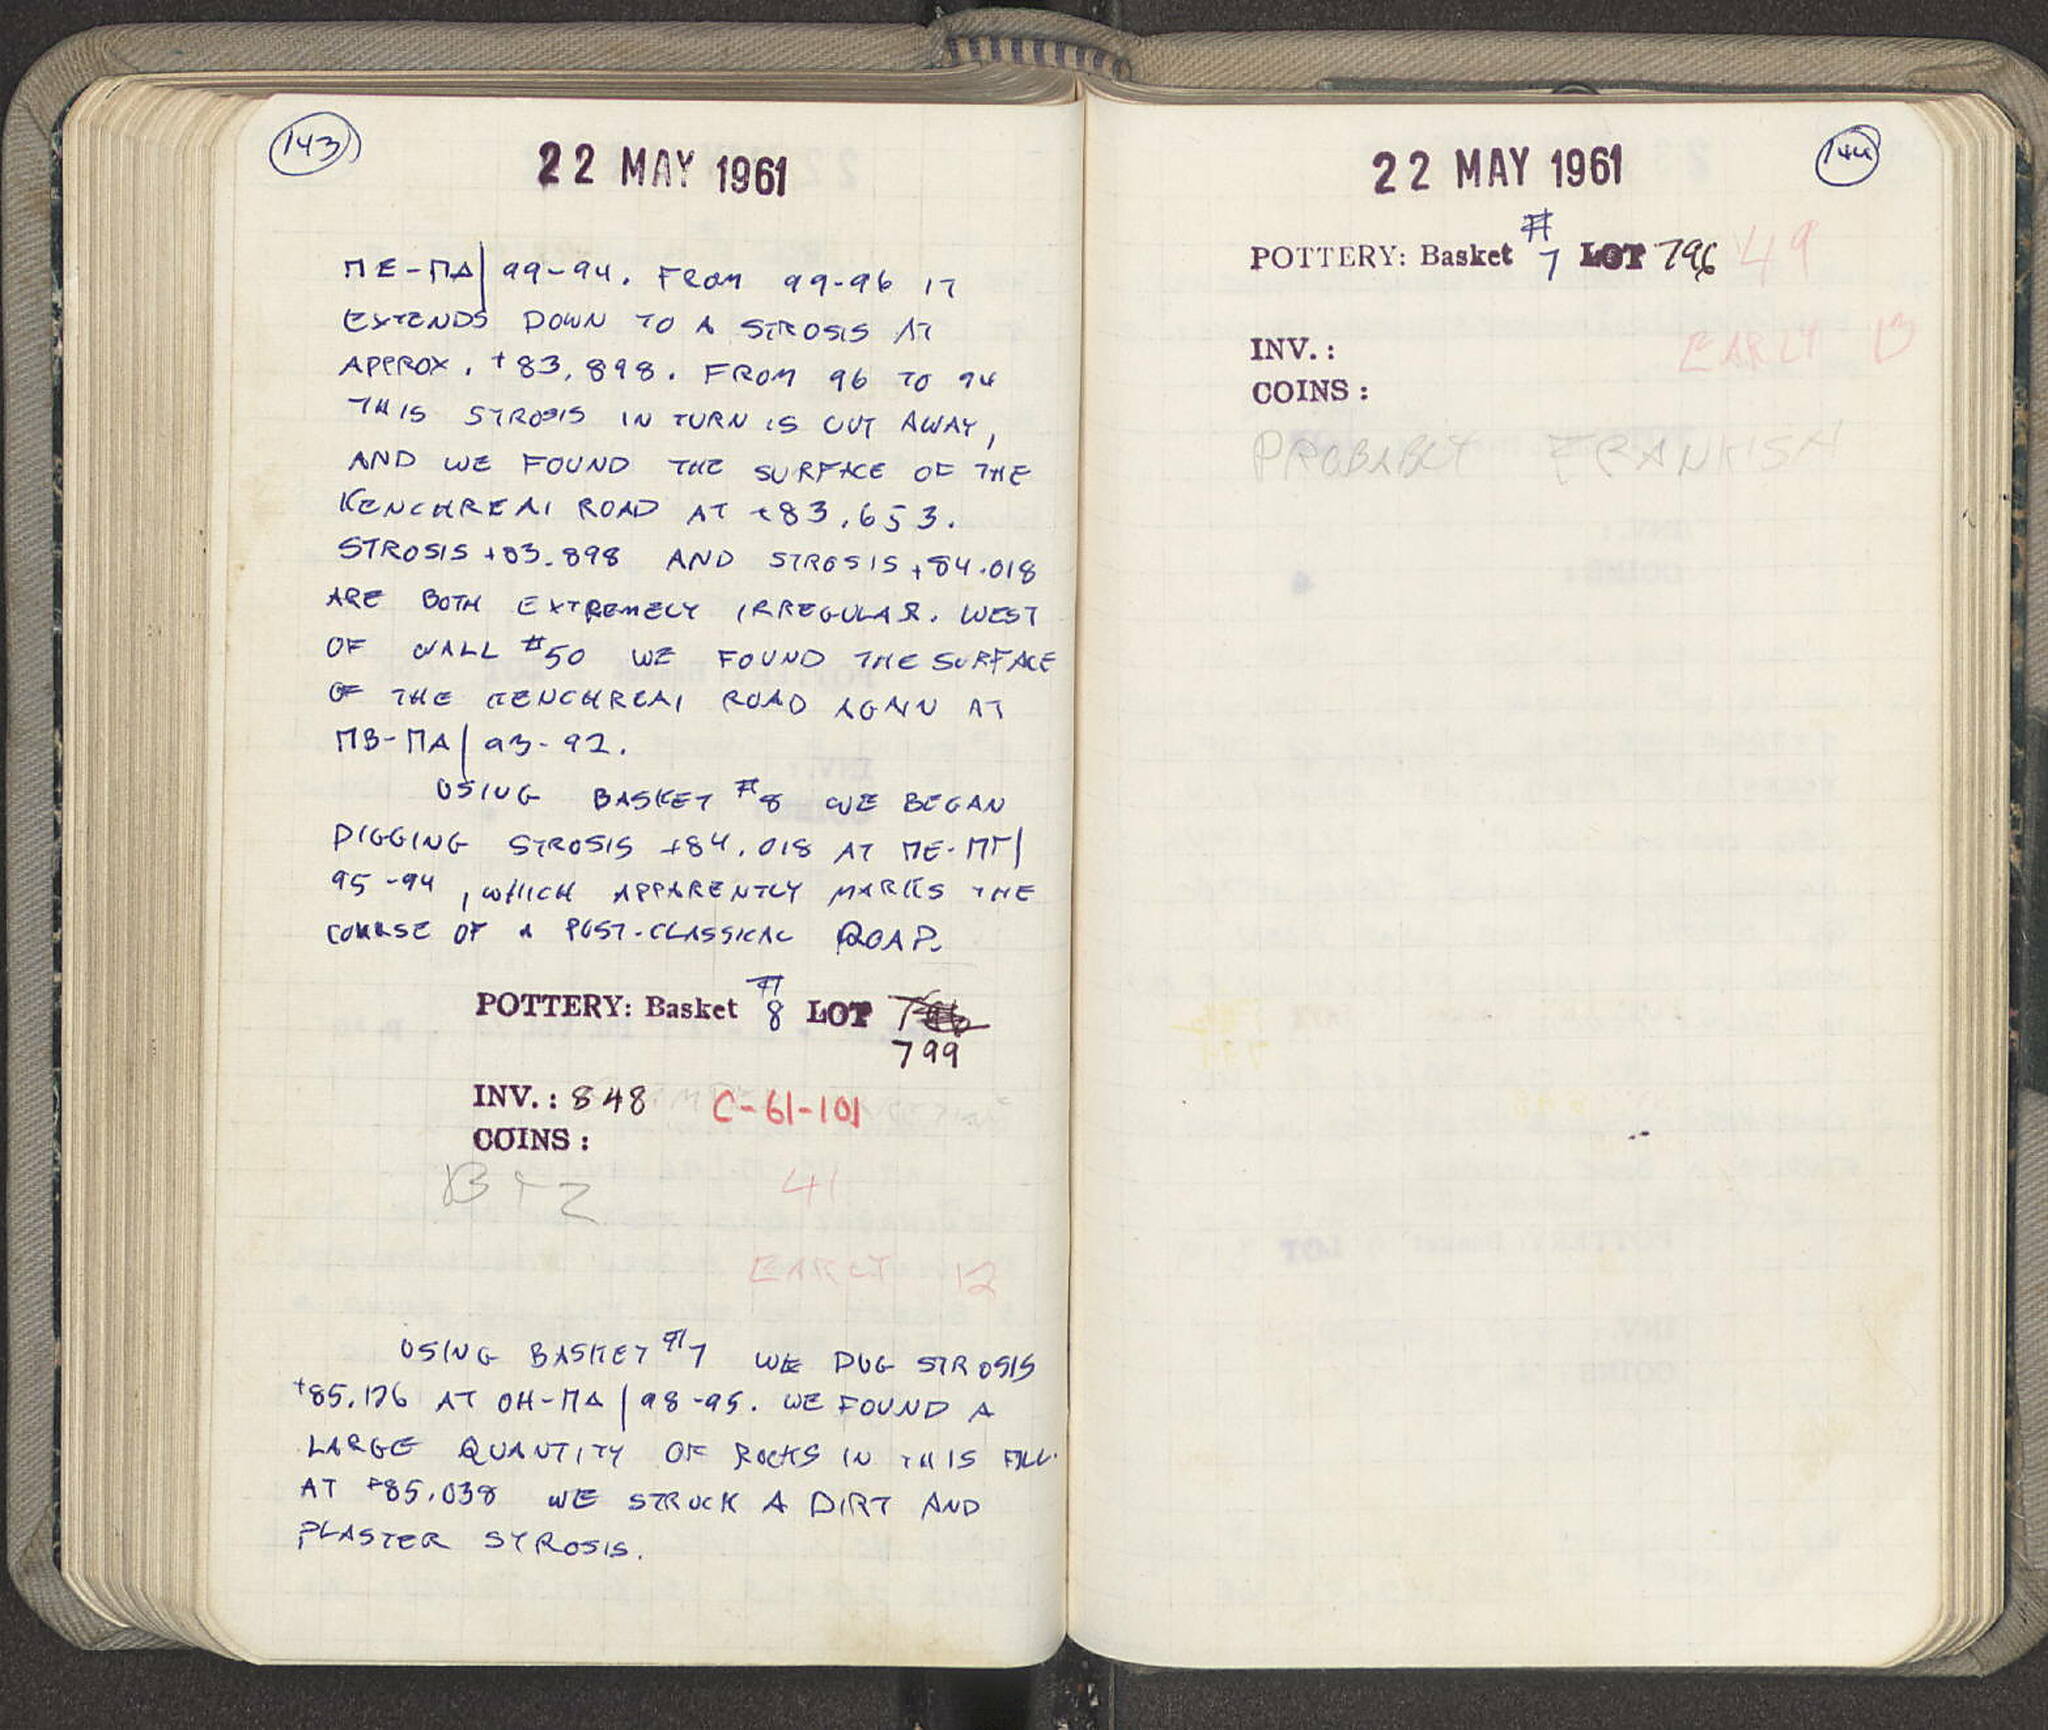 143
22 MAY 1961
ΠΕ-ΠΔ/99-94. FROM 99-96 IT
EXTENDS DOWN TO A STROSIS AT
APPROX. +83,898. FROM 96 TO 94
THIS STROSIS IN TURN IS CUT AWAY,
AND WE FOUND THE SURFACE OF THE
KENCHREAI ROAD AT +83,653.
STROSIS +83.898 AND STROSIS +84.018
ARE BOTH EXTREMELY IRREGULAR. WEST
OF WALL #50 WE FOUND THE SURFACE
OF THE KENCHREAI ROAD AGAIN AT
ΠΒ-ΠΑ/93-92.
USING BASKET #8 WE BEGAN
DIGGING STROSIS +84,018 AT ΠΕ-ΠΓ/
95-94, WHICH APPARENTLY MARKS THE
COURSE OF A POST-CLASSICAL ROAD.
POTTERY: Basket #8 LOT
799
INV.: 848 C-61-101
COINS:
BYZ 41
EARLY 12
USING BASKET #7 WE DUG STROSIS
+85,126 AT ΟΗ-ΠΔ/98-95. WE FOUND A
LARGE QUANTITY OF ROCKS IN THIS FILL.
AT +85,038 WE STRUCK A DIRT AND
PLASTER STROSIS.
144
22 MAY 1961
POTTERY: Basket #7 LOT 796 49
INV.: EARLY 13
COINS:
PROBABLY FRANKISH